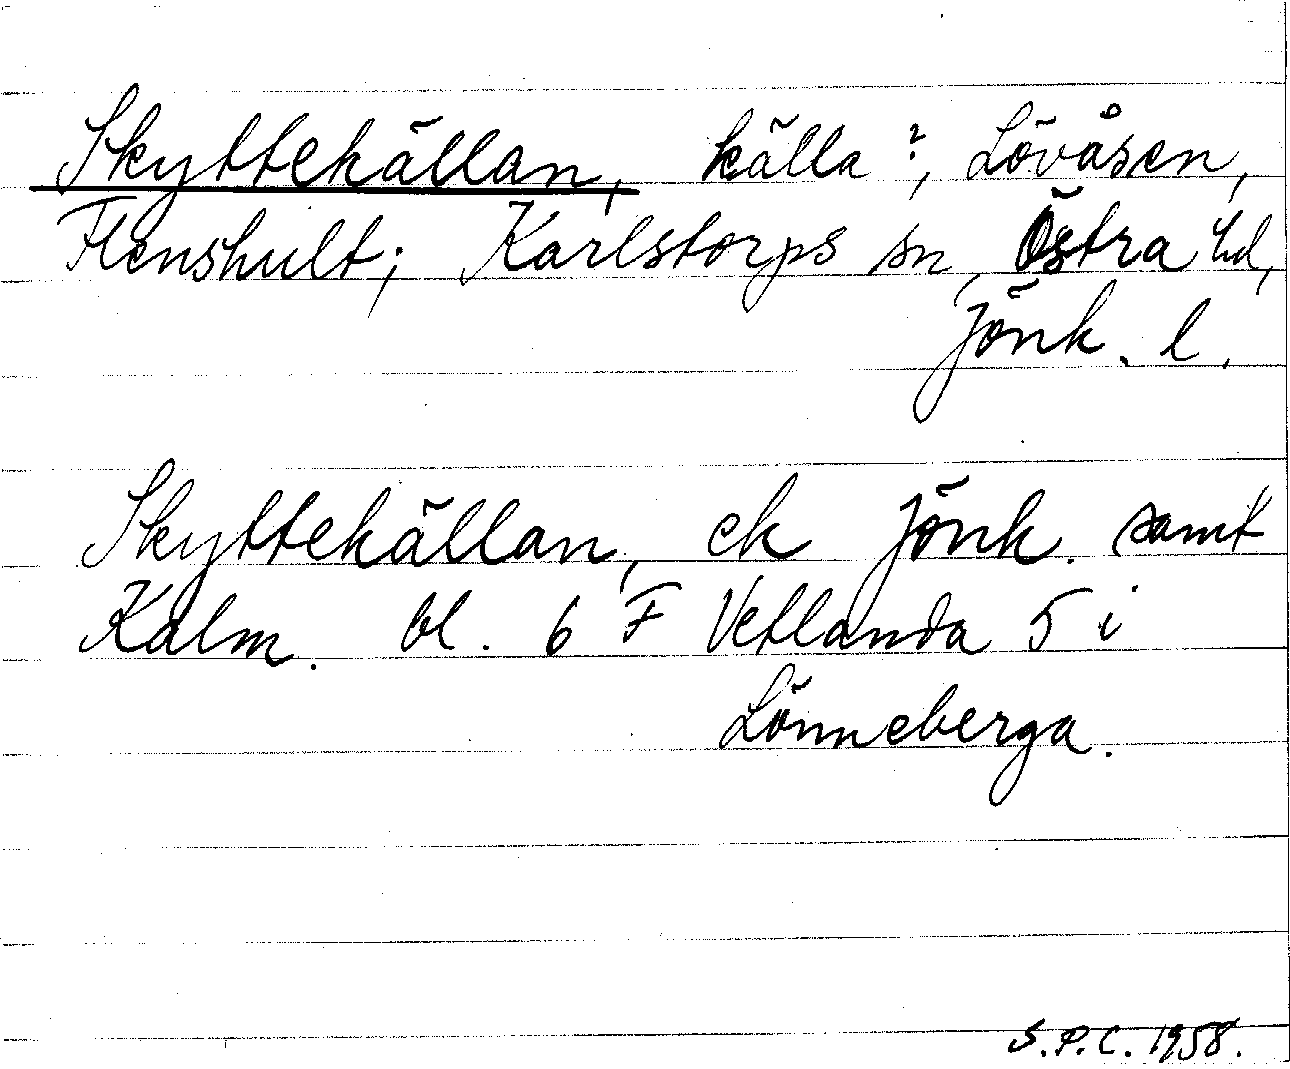 Skyttekällan, källa?, Lövåsen,
Flenshult; Karlstorps sn, Östra hd,
Jönk. l.
Skyttekällan, ek Jönk. samt
Kalm. bl. 6 F Vetlanda 5 i
Lönneberga.
S.P.C. 1958.